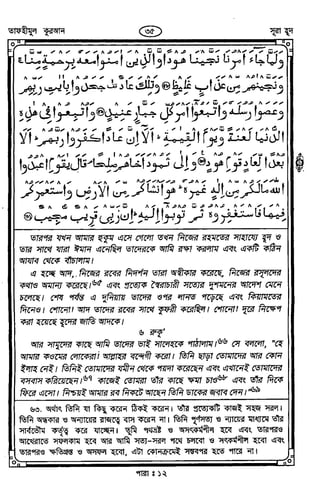 তাফহীমুল কুরআন
৩৫
সূরা হূদ
وَلَمَّا جَاءَ أَمْرُنَا نَجَّيْنَا هُودًا وَّالَّذِينَ آمَنُوا مَعَهُ بِرَحْمَةٍ مِّنَّا ۚ
وَنَجَّيْنَاهُم مِّنْ عَذَابٍ غَلِيظٍ ﴿٥٨﴾ وَتِلْكَ عَادٌ ۖ جَحَدُوا بِآيَاتِ رَبِّهِمْ
وَعَصَوْا رُسُلَهُ وَاتَّبَعُوا أَمْرَ كُلِّ جَبَّارٍ عَنِيدٍ ﴿٥٩﴾ وَأُتْبِعُوا فِي هَٰذِهِ
الدُّنْيَا لَعْنَةً وَّيَوْمَ الْقِيَامَةِ ۗ أَلَا إِنَّ عَادًا كَفَرُوا رَبَّهُمْ ۗ أَلَا
بُعْدًا لِّعَادٍ قَوْمِ هُودٍ ﴿٦٠﴾ وَإِلَىٰ ثَمُودَ أَخَاهُمْ صَالِحًا ۚ قَالَ يَا قَوْمِ اعْبُدُوا
اللَّهَ مَا لَكُم مِّنْ إِلَٰهٍ غَيْرُهُ ۖ هُوَ أَنشَأَكُم مِّنَ الْأَرْضِ وَاسْتَعْمَرَكُمْ
فِيهَا فَاسْتَغْفِرُوهُ ثُمَّ تُوبُوا إِلَيْهِ ۚ إِنَّ رَبِّي قَرِيبٌ مُّجِيبٌ ﴿٦١﴾
তারপর যখন আমার হুকুম এসে গেলো তখন নিজের রহমতের সাহায্যে হূদ ও
তার সাথে যারা ঈমান এনেছিল তাদেরকে আমি রক্ষা করলাম এবং একটি কঠিন
আযাব থেকে বাঁচালাম।
এ হচ্ছে আদ, নিজের রবের নিদর্শন তারা অস্বীকার করেছে, নিজের রসূলদের
কথাও অমান্য করেছে। এবং প্রত্যেক স্বৈরাচারী সত্যের দুশমনের আদেশ মেনে
চলেছে। শেষ পর্যন্ত এ দুনিয়ায় তাদের ওপর লানত পড়েছে এবং কিয়ামতের
দিনেও। শোনো! আদ তাদের রবের সাথে কুফরী করেছিল। শোনো! দূরে নিক্ষেপ
করা হয়েছে হূদের জাতি আদকে।
৬ রুকূ'
আর সামূদের কাছে আমি তাদের ভাই সালেহকে পাঠালাম। সে বললো, “হে
আমার কওমের লোকেরা! আল্লাহর বন্দেগী করো। তিনি ছাড়া তোমাদের আর কোন
ইলাহ নেই। তিনিই তোমাদের যমীন থেকে পয়দা করেছেন এবং এখানেই তোমাদের
বসবাস করিয়েছেন। কাজেই তোমরা তাঁর কাছে ক্ষমা চাও এবং তাঁর দিকে
ফিরে এসো। নিশ্চয়ই আমার রব নিকটে আছেন তিনি ডাকের জবাব দেন।
৬৩. অর্থাৎ তিনি যা কিছু করেন ঠিকই করেন। তাঁর প্রত্যেকটি কাজই সহজ সরল।
তিনি অন্ধকার ও অন্যায়ের রাজত্বে বাস করেন না। তিনি পূর্ণসত্য ও ন্যায়ের মাধ্যমে তাঁর
সার্বভৌম কর্তৃত্ব করে যাচ্ছেন। তুমি পথভ্রষ্ট ও অসৎকর্মশীল হবে এবং তারপরও
আখেরাতে সফলকাম হবে আর আমি সত্য-সরল পথে চলবো ও সৎকর্মশীল হবো এবং
তারপরও ক্ষতিগ্রস্ত ও অসফল হবো, এটা কোনক্রমেই সম্ভবপর হতে পারে না।
পারা : ১২